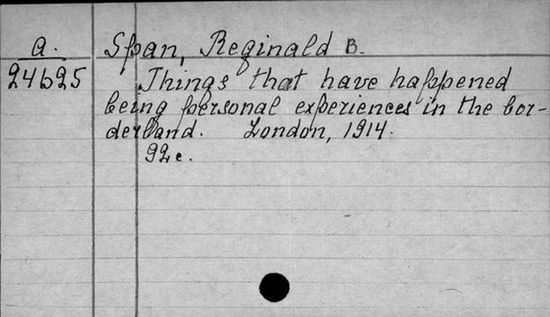 a. Span, Reginald B.
24625 Things that have happened
being personal experiences in the bor-
derland. London, 1914.
92 c.